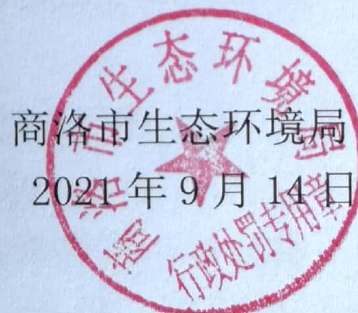 商洛市生态环境局
2021年9月14日
商洛市生态环境局
行政处罚专用章